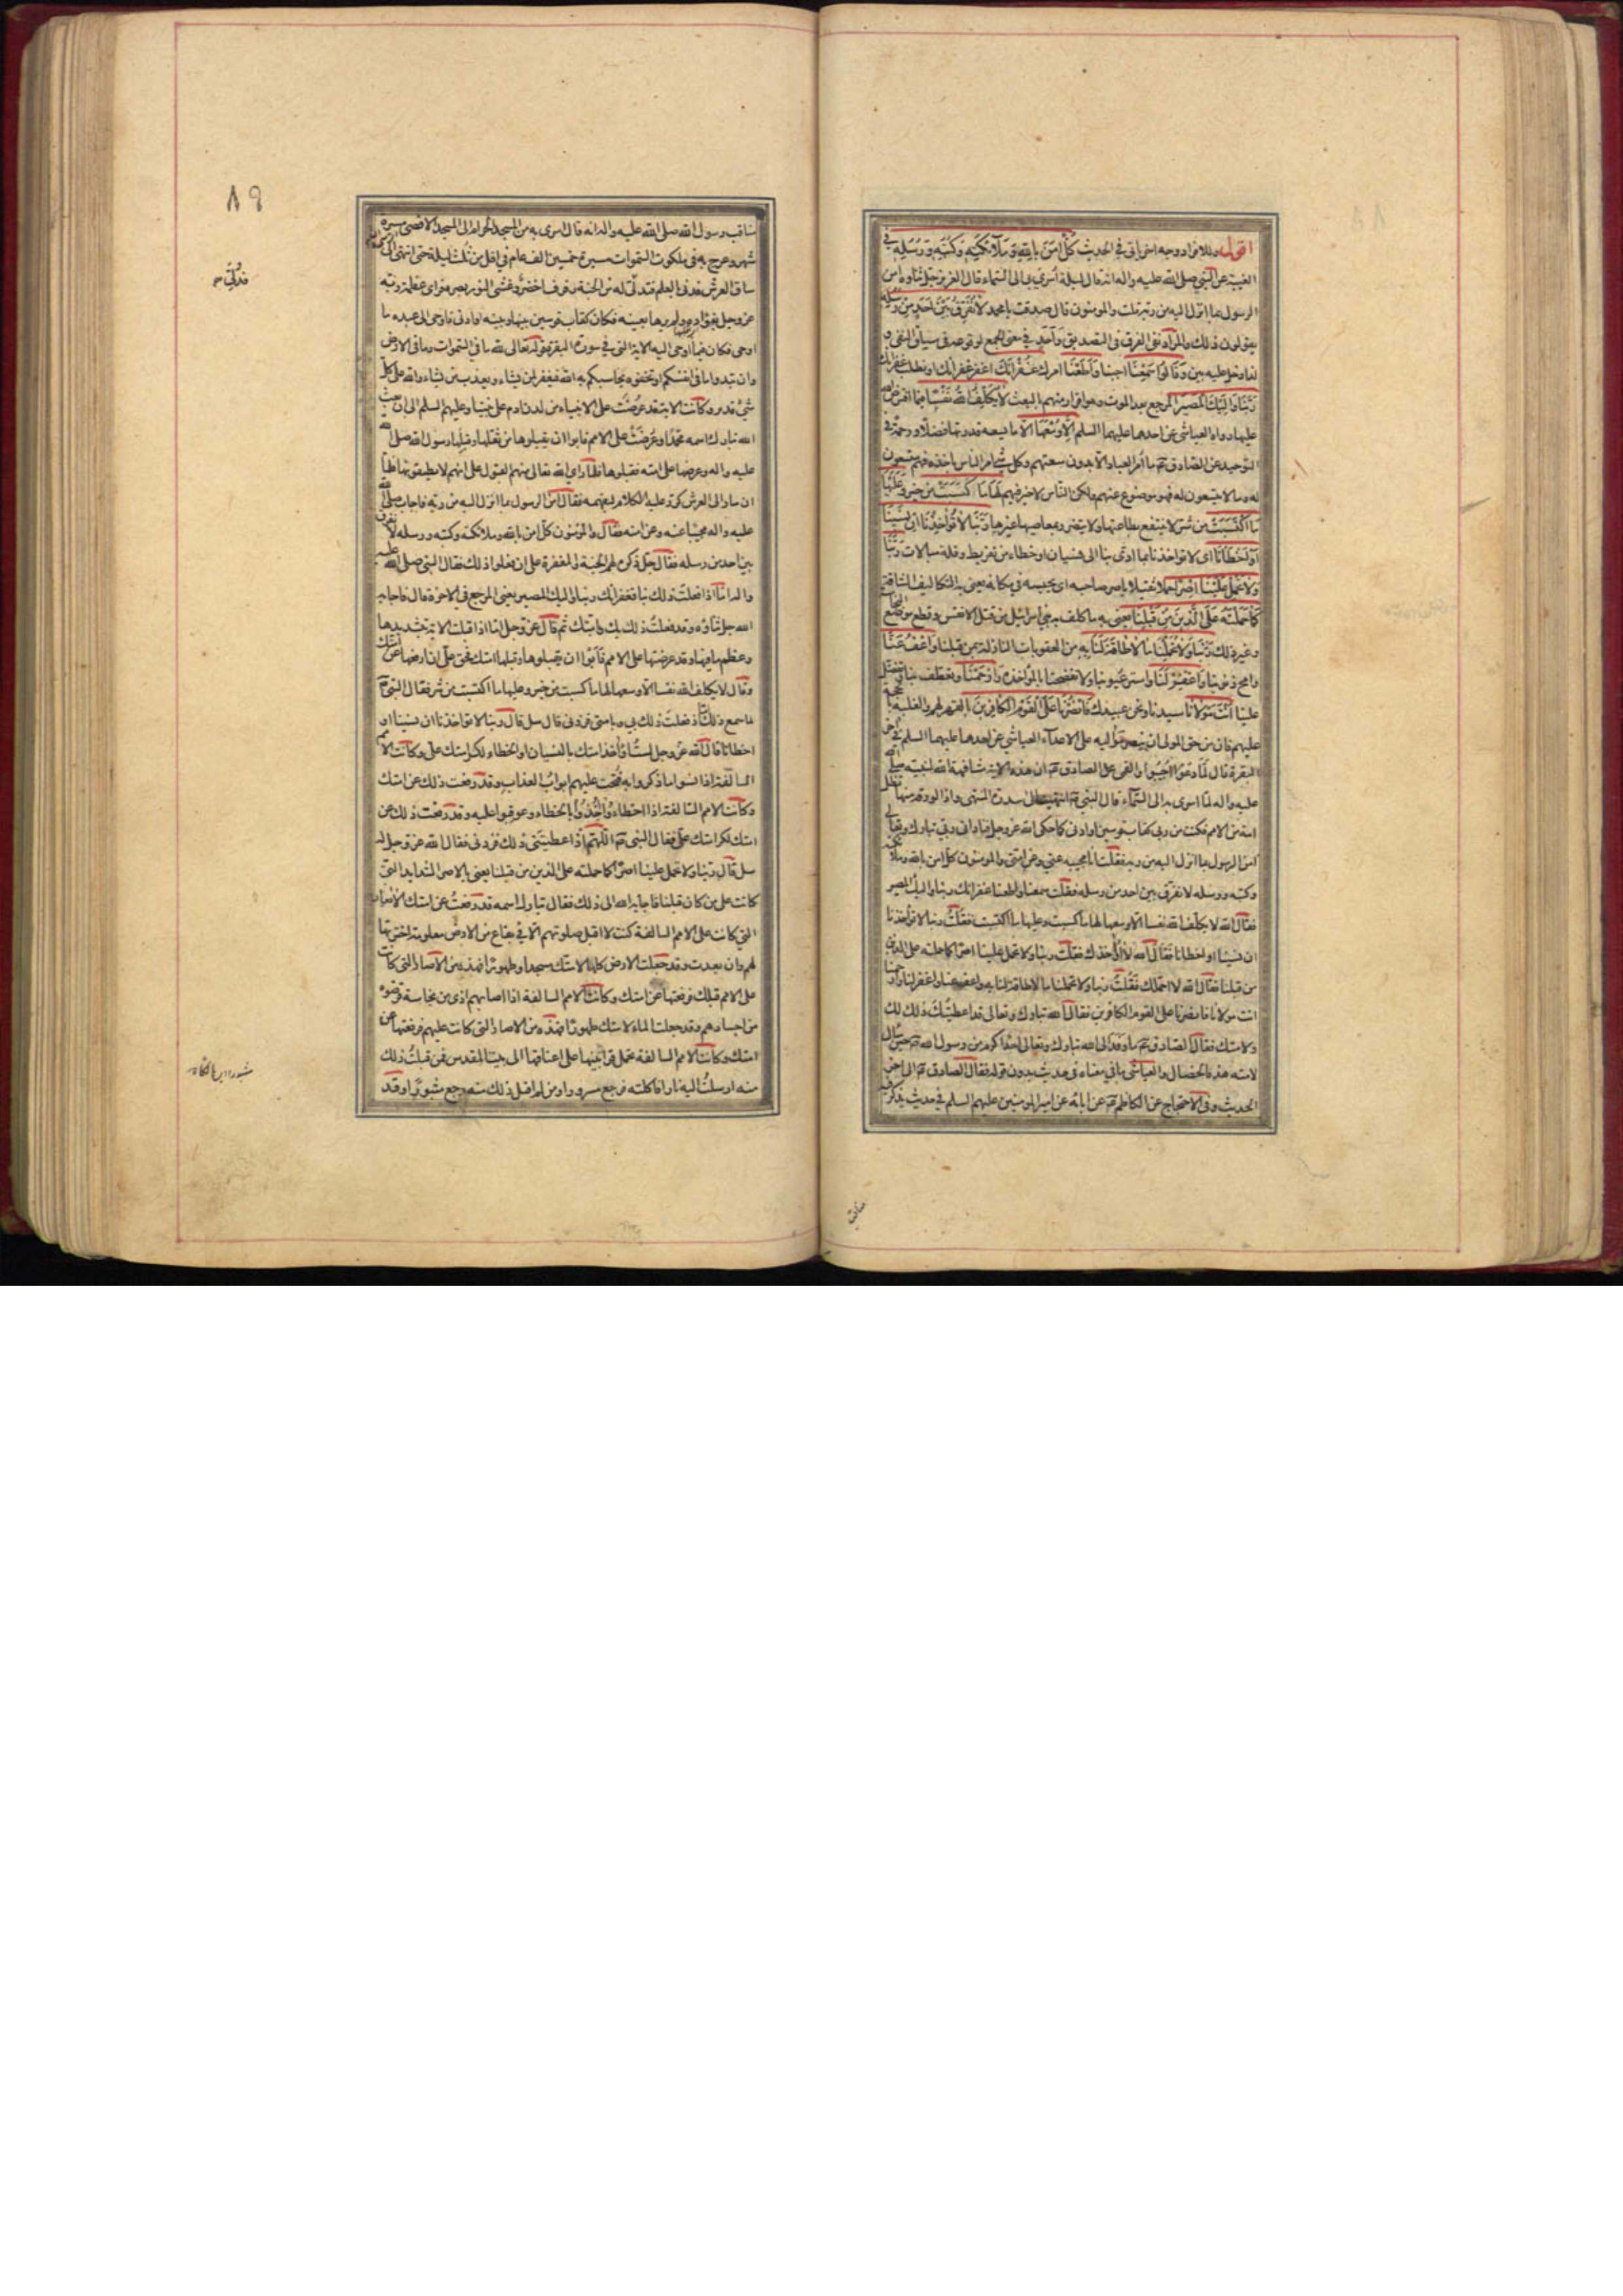 اقول وللافراد وجه اخر ياتى فى الحديث كل امن بالله وملائكته وكتبه ورسله فى
الغيبة عن النبي صلى الله عليه واله انه قال ليلة اسرى بى الى السماء قال العزيز جل ثناؤه امن
الرسول بما انزل اليه من ربه قلت والمومنون قال صدقت يا محمد لا نفرق بين احد من رسله
يقولون ذلك والمراد نفى الفرق فى التصديق واحد فى معنى الجمع لوقوعه فى سياق النفى و
لذا دخل عليه بين وقالوا سمعنا اجبنا واطعنا امرك غفرانك اغفر غفرانك او نطلب غفرانك
ربنا واليك المصير المرجع بعد الموت وهو اقرار منهم بالبعث لا يكلف الله نفسا فيما افترض الله
عليها رواه العياشى عن احدهما عليهما السلم الا وسعها الا ما يسعه قدرتها فضلا ورحمة فى
التوحيد عن الصادق ع ما أمر العباد الا بدون سعتهم وكل شئ امر الناس باخذه فهم متسعون
له وما لا يتسعون له فهو موضوع عنهم ولكن الناس لا خير فيهم لها ما كسبت من خير وعليها
ما اكتسبت من شر لا ينتفع بطاعتها ولا يتضرر بمعاصيها غيرها ربنا لا تؤاخذنا ان نسينا
او اخطأنا اى لا تواخذنا بما ادى بنا الى نسيان او خطاء من تفريط وقلة مبالات ربنا
ولا تحمل علينا اصرا حملا ثقيلا ياصر صاحبه اى يحبسه فى مكانه يعنى به التكاليف الشاقة
كما حملته على الذين من قبلنا يعنى به ما كلف به بنى اسرائيل من قتل الانفس وقطع موضع النجاسة
وغير ذلك ربنا ولا تحملنا ما لا طاقة لنا به من العقوبات النازلة بمن قبلنا واعف عنا
وامح ذنوبنا واغفر لنا واستر عيوبنا ولا تفضحنا بالمؤاخذه وارحمنا وتعطف بنا وتفضل
علينا انت مولانا سيدنا ونحن عبيدك فانصرنا على القوم الكافرين بالقهر لهم والغلبة بالحجة
عليهم فان من حق المولى ان ينصر مواليه على الاعداء العياشى عن احدهما عليهما السلم فى اخر
البقرة قال لما دعوا اجيبوا والقمى عن الصادق ع ان هذه الاية مشافهة الله لنبيه صلى الله
عليه واله لما اسرى به الى السماء قال النبي ص انتهيت الى سدرة المنتهى واذا الورقة منها تظل
امة من الامم فكنت من ربى كقاب قوسين او ادنى كما حكى الله عز وجل فنادانى ربى تبارك وتعالى
امن الرسول بما انزل اليه من ربه فقلت انا مجيبه عنى وعن امتى والمومنون كل امن بالله وملائكته
وكتبه ورسله لا نفرق بين احد من رسله فقلت سمعنا واطعنا غفرانك ربنا واليك المصير
فقال الله لا يكلف الله نفسا الا وسعها لها ما كسبت وعليها ما اكتسبت فقلت ربنا لا تؤاخذنا
ان نسينا او اخطأنا فقال الله لا اؤاخذك فقلت ربنا ولا تحمل علينا اصرا كما حملته على الذين
من قبلنا فقال الله لا احملك فقلت ربنا ولا تحملنا ما لا طاقة لنا به واعف عنا واغفر لنا وارحمنا
انت مولانا فانصرنا على القوم الكافرين فقال الله تبارك وتعالى قد اعطيتك ذلك لك
ولامتك فقال الصادق ع ما وفد الى الله تبارك وتعالى احد اكرم من رسول الله ص حين سأل
لامته هذه الخصال والعياشى ما فى معناه فى حديث بدون قوله فقال الصادق ع الى اخر
الحديث وفى الاحتجاج عن الكاظم ع عن ابائه عن امير المومنين عليهم السلم فى حديث يذكر فيه
مناقب
٨٩
مناقب رسول الله صلى الله عليه واله انه قال اسرى به من المسجد الحرام الى المسجد الاقصى مسيرة
شهر وعرج به فى ملكوت السموات مسيرة خمسين الف عام فى اقل من ثلث ليلة حتى انتهى الى
ساق العرش فدنى بالعلم فتدلى له من الجنة رفرف اخضر وغشى النور بصره فراى عظمة ربه
عز وجل بفؤاده ولم يرها بعينه فكان كقاب قوسين بينها وبينه او ادنى فاوحى الى عبده ما
اوحى فكان فيما اوحى اليه الاية التى فى سورة البقرة قوله تعالى لله ما فى السموات وما فى الارض
وان تبدوا ما فى انفسكم او تخفوه يحاسبكم به الله فيغفر لمن يشاء ويعذب من يشاء والله على كل
شئ قدير وكانت الاية قد عرضت على الانبياء من لدن ادم على نبينا وعليهم السلم الى ان بعث
الله تبارك اسمه محمدا وعرضت على الامم فابوا ان يقبلوها من ثقلها وقبلها رسول الله صلى الله
عليه واله وعرضها على امته فقبلوها فلما راى الله تعالى منهم القبول على انهم لا يطيقونها فلما
ان سار الى العرش كرر عليه الكلام ليفهمه فقال امن الرسول بما انزل اليه من ربه فاجاب صلى الله
عليه واله مجيبا عنه وعن امته فقال والمؤمنون كل امن بالله وملائكته وكتبه ورسله لا نفرق
بين احد من رسله فقال جل ذكره لهم الجنة والمغفرة على ان فعلوا ذلك فقال النبي صلى الله عليه
واله اما اذا فعلت ذلك بنا فغفرانك ربنا واليك المصير يعنى المرجع فى الاخرة قال فاجابه
الله جل ثناؤه وقد فعلت ذلك بك وبامتك ثم قال عز وجل اما اذا قبلت الاية بتشديدها
وعظم ما فيها وقد عرضتها على الامم فابوا ان يقبلوها وقبلها امتك فحق على ان ارفعها عن امتك
وقال لا يكلف الله نفسا الا وسعها لها ما كسبت من خير وعليها ما اكتسبت من شر فقال النبي ص
لما سمع ذلك اما اذ فعلت ذلك بى وبامتى فزدنى قال سل قال ربنا لا تواخذنا ان نسينا او
اخطأنا قال الله عز وجل لست اؤاخذ امتك بالنسيان او الخطاء لكرامتك على وكانت الامم
السالفة اذا نسوا ما ذكروا به فتحت عليهم ابواب العذاب وقد رفعت ذلك عن امتك
وكانت الامم السالفة اذا اخطاءوا اخذوا بالخطاء وعوقبوا عليه وقد رفعت ذلك عن
امتك لكرامتك على فقال النبي ص اللهم اذا اعطيتنى ذلك فزدنى فقال الله عز وجل له
سل قال ربنا ولا تحمل علينا اصرا كما حملته على الذين من قبلنا يعنى بالاصر الشدايد التى
كانت على من كان قبلنا فاجابه الله الى ذلك فقال تبارك اسمه قد رفعت عن امتك الاصار
التى كانت على الامم السالفة كنت لا اقبل صلوتهم الا فى بقاع من الارض معلومة اخترتها
لهم وان بعدت وقد جعلت الارض كلها لامتك مسجدا وطهورا فهذه من الاصار التى كانت
على الامم قبلك فرفعتها عن امتك وكانت الامم السالفة اذا اصابهم اذى من نجاسة قرضوه
من اجسادهم وقد جعلت الماء لامتك طهورا فهذه من الاصار التى كانت عليهم فرفعتها عن
امتك وكانت الامم السالفة تحمل قرابينها على اعناقها الى بيت المقدس فمن قبلت ذلك
منه ارسلت اليه نارا فاكلته فرجع مسرورا ومن لم اقبل ذلك منه رجع مثبورا وقد